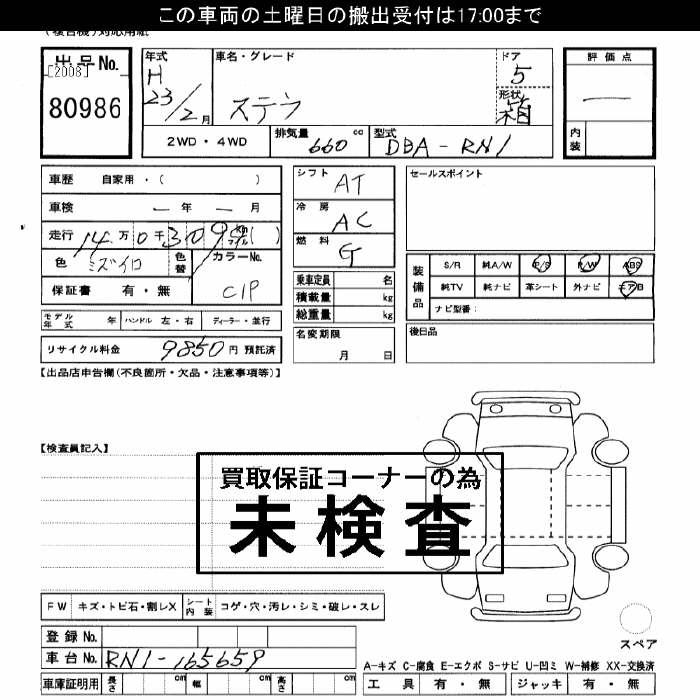 この車両の土曜日の搬出受付は17:00まで
(複合機)対応用紙
出品No. [2008]
80986
年式
H
23/2月
車名・グレード
ステラ
ドア
5
形状
箱
2WD・4WD
排気量 660 cc
型式 DBA-RN1
評価点
—
内装
車歴 自家用・( )
車検 — 年 — 月
走行 14万0千309 km マイル ( )
色 ミズイロ
色替
カラーNo.
C1P
保証書 有・無
モデル年式 年
ハンドル 左・右
ディーラー・並行
リサイクル料金 9850円 預託済
シフト AT
冷房 AC
燃料 G
乗車定員 名
積載量 kg
総重量 kg
名変期限
月 日
セールスポイント
装備品
S/R 純A/W P/S P/W ABS
純TV 純ナビ 革シート 外ナビ エアB
ナビ型番:
後日品
【出品店申告欄(不良箇所・欠品・注意事項等)】
【検査員記入】
買取保証コーナーの為
未検査
FW キズ・トビ石・割レX
シート内装 コゲ・穴・汚レ・シミ・破レ・スレ
登録No.
車台No. RN1-165659
車庫証明用 長さ cm 幅 cm 高さ cm
スペア
A-キズ C-腐食 E-エクボ S-サビ U-凹ミ W-補修 XX-交換済
工具 有・無 ジャッキ 有・無